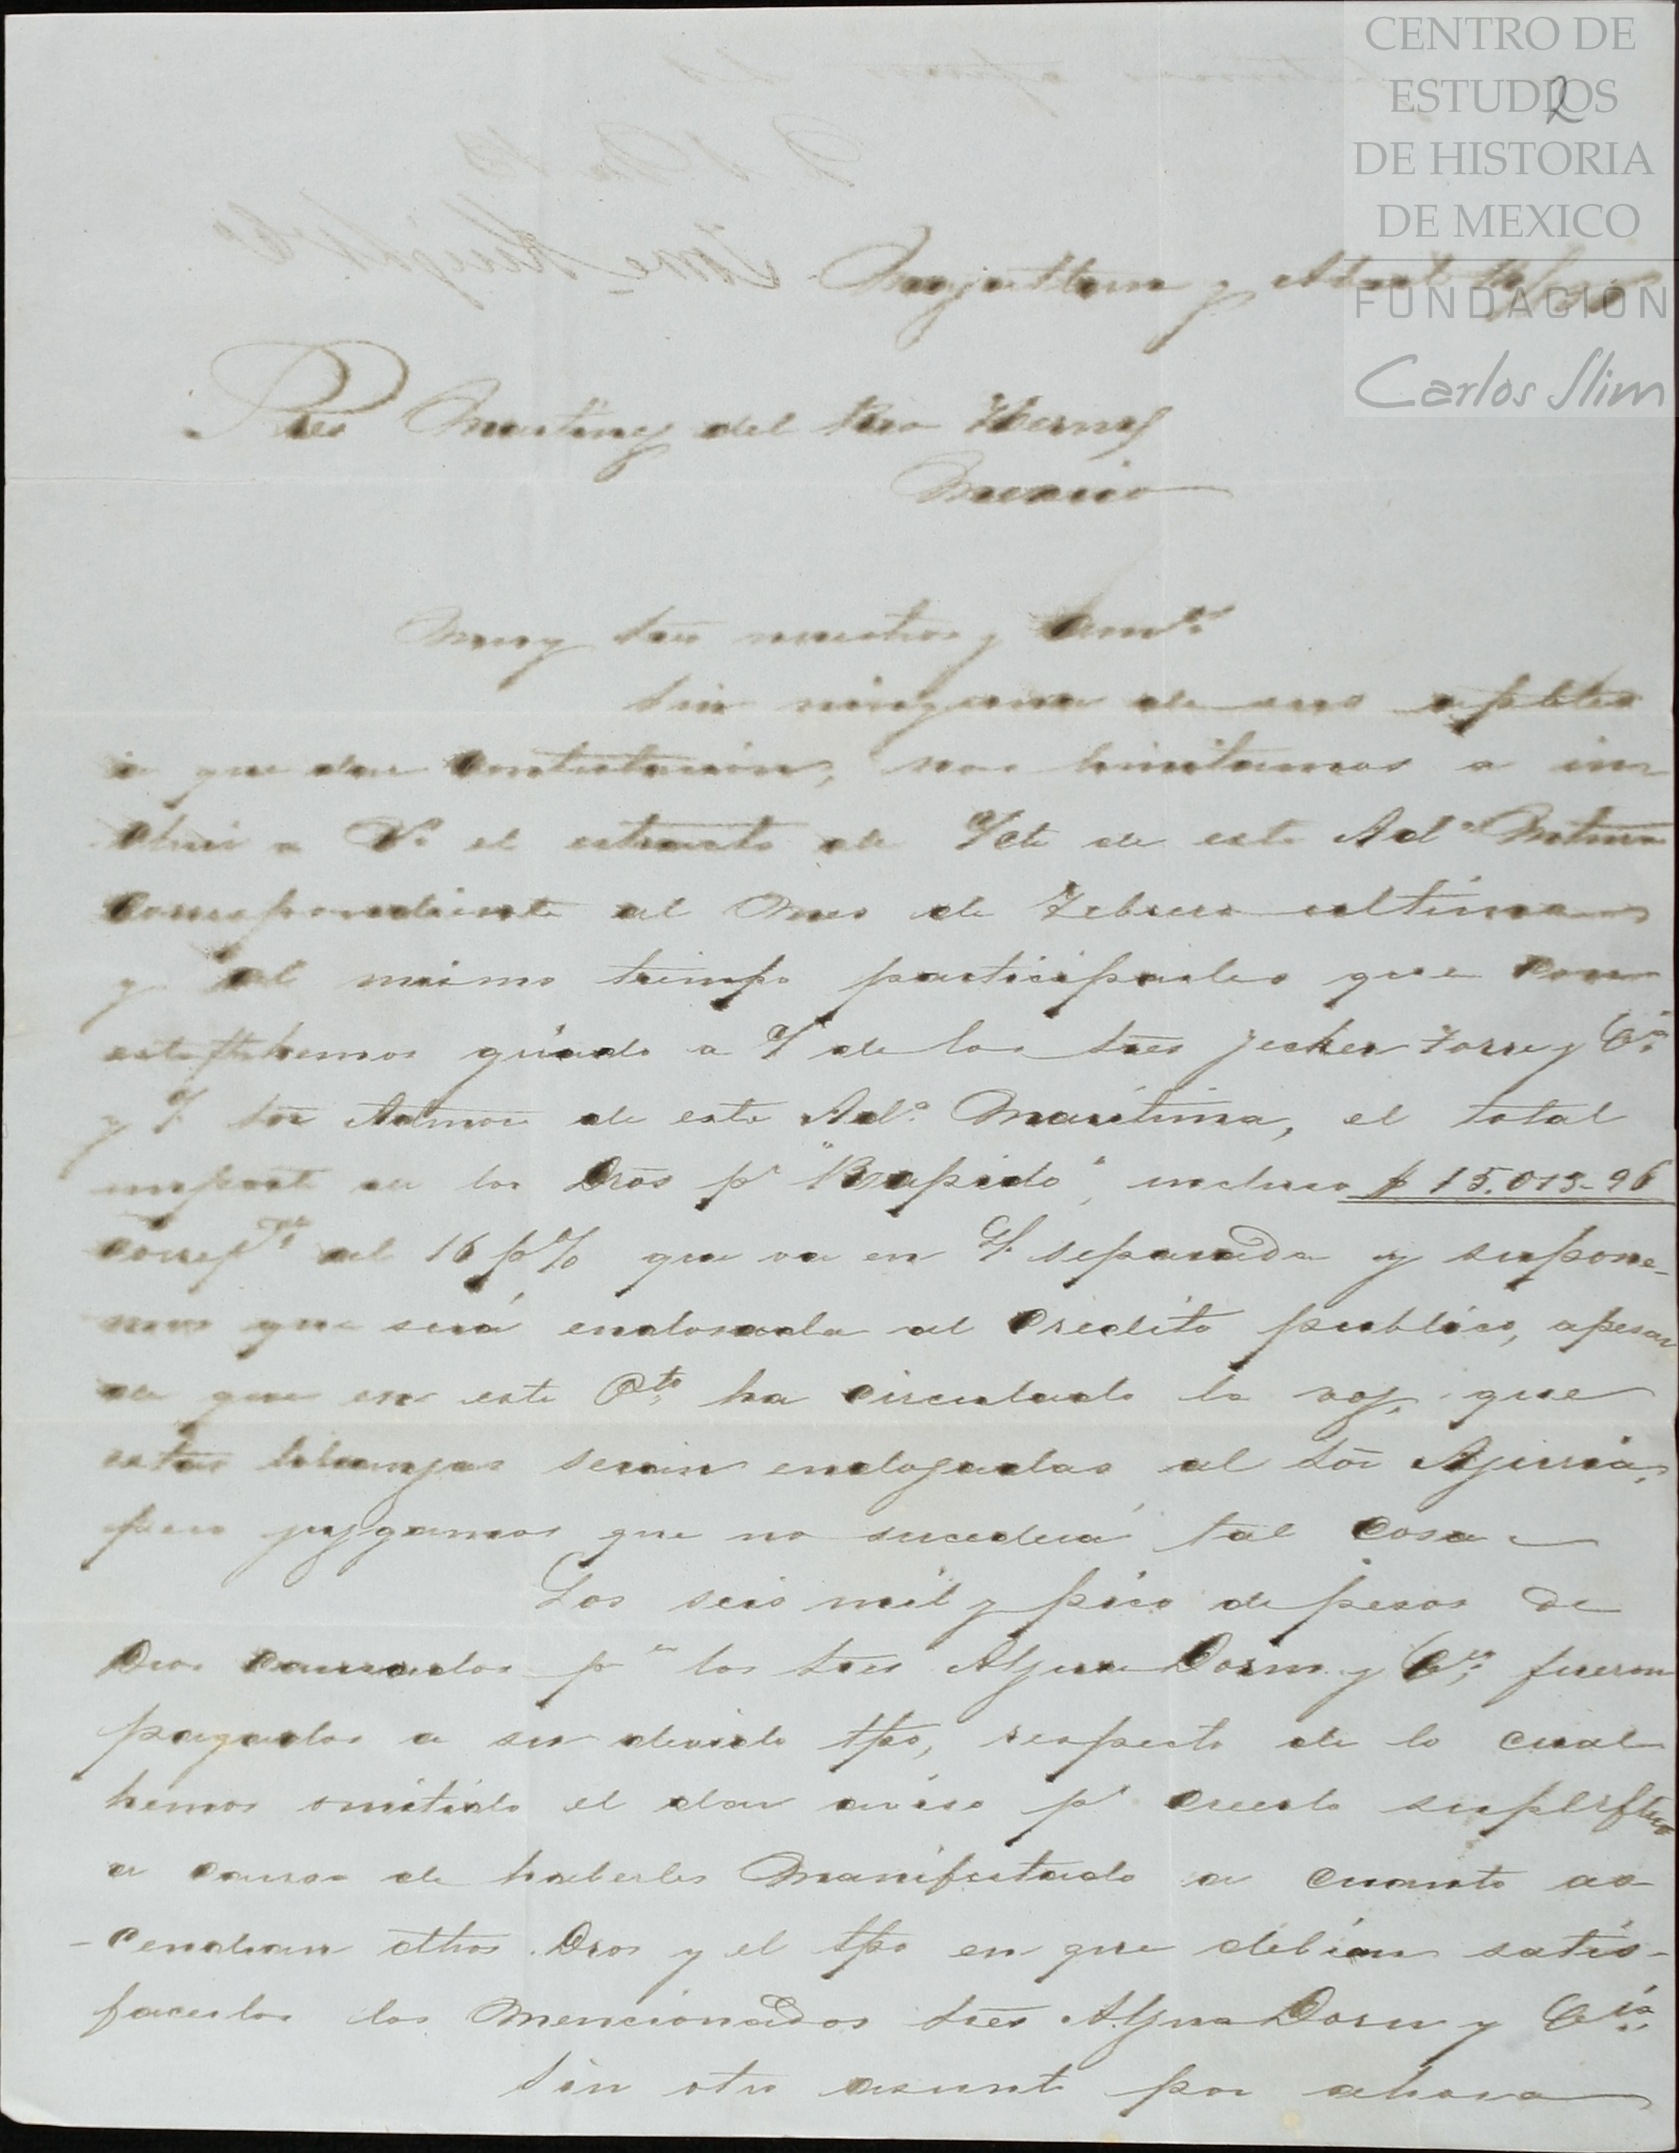 CENTRO DE
ESTUDIOS
DE HISTORIA
DE MEXICO
FUNDACIÓN
Carlos Slim
2
Mazatlan y Abril
Sres Martinez del Rio Hermos
Mexico
Muy Sres nuestros y Amos
Sin ninguna de sus aptbles
a que dar contestacion, nos limitamos a in
cluir a Vs el estracto de Cte de esta Ada Maritima
correspondiente al mes de Febrero ultimo
y al mismo tiempo participarles que con
esta fha hemos girado a f/ de los Sres Jecker Torre y Ca
y c/ Sor Admor de esta Ada Maritima, el total
importe de los Dros pr "Rapido", incluso $ 15.013-96
correspte al 16 p% que va en L/. separada y supone-
mos que será endosada al Credito publico, apesar
de que en este Pto ha circulado la voz, que
estas libranzas serian endozadas al Sor
pero juzgamos que no sucederá tal cosa
Los seis mil y pico de pesos de
Dros causados pr los Sres Aljura Dorn y Ca, fueron
pagados a su devido tpo, respecto de lo cual
hemos omitido el dar aviso pr creerlo superfluo
a causa de haberles manifestado a cuanto as
-cendian dhos Dros y el tpo en que debian satis-
facerlos los mencionados Sres Aljura Dorn y Cia
Sin otro asunto por ahora